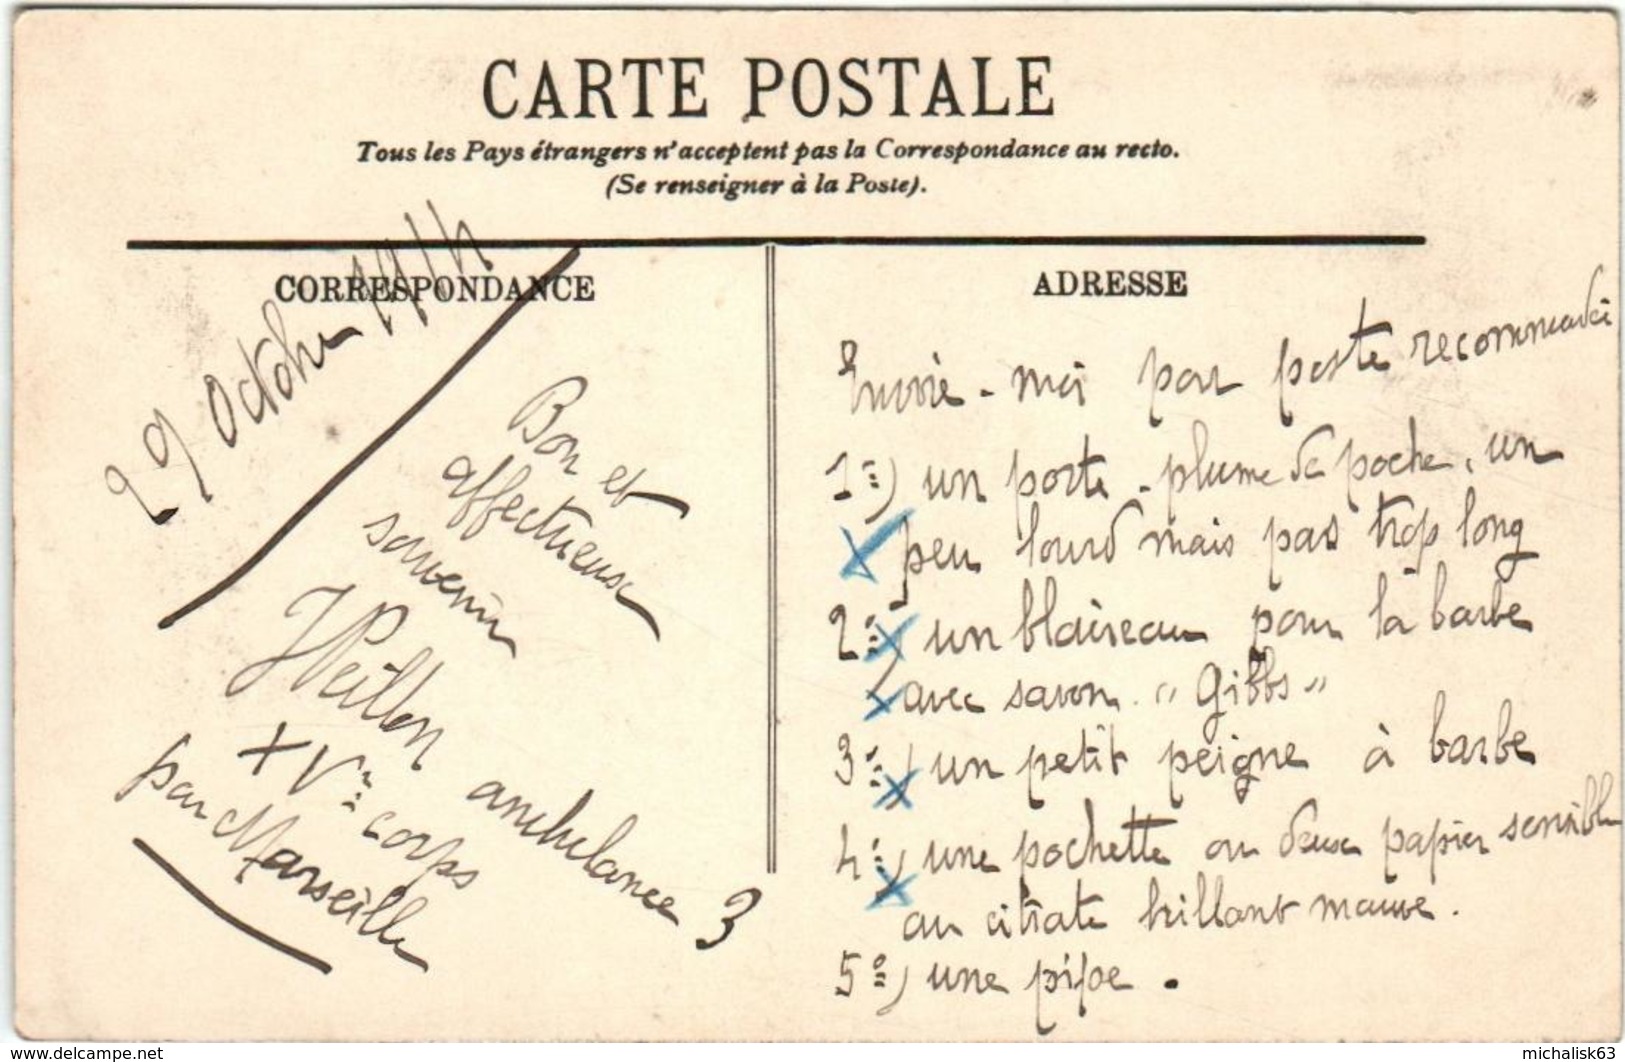 CARTE POSTALE
Tous les Pays étrangers n'acceptent pas la Correspondance au recto.
(Se renseigner à la Poste).
CORRESPONDANCE
29 Octobre 1914
Bon et
affectueux
souvenir
ambulance 3
XVe corps
par Marseille
ADRESSE
Envoie-moi par poste recommandée
1º) un porte-plume de poche, un
peu lourd mais pas trop long
2º) un blaireau pour la barbe
avec savon "Gibbs"
3º) un petit peigne à barbe
4º) une pochette ou deux papier sensible
au citrate brillant mauve.
5º) une pipe.
www.delcampe.net
michalisk63